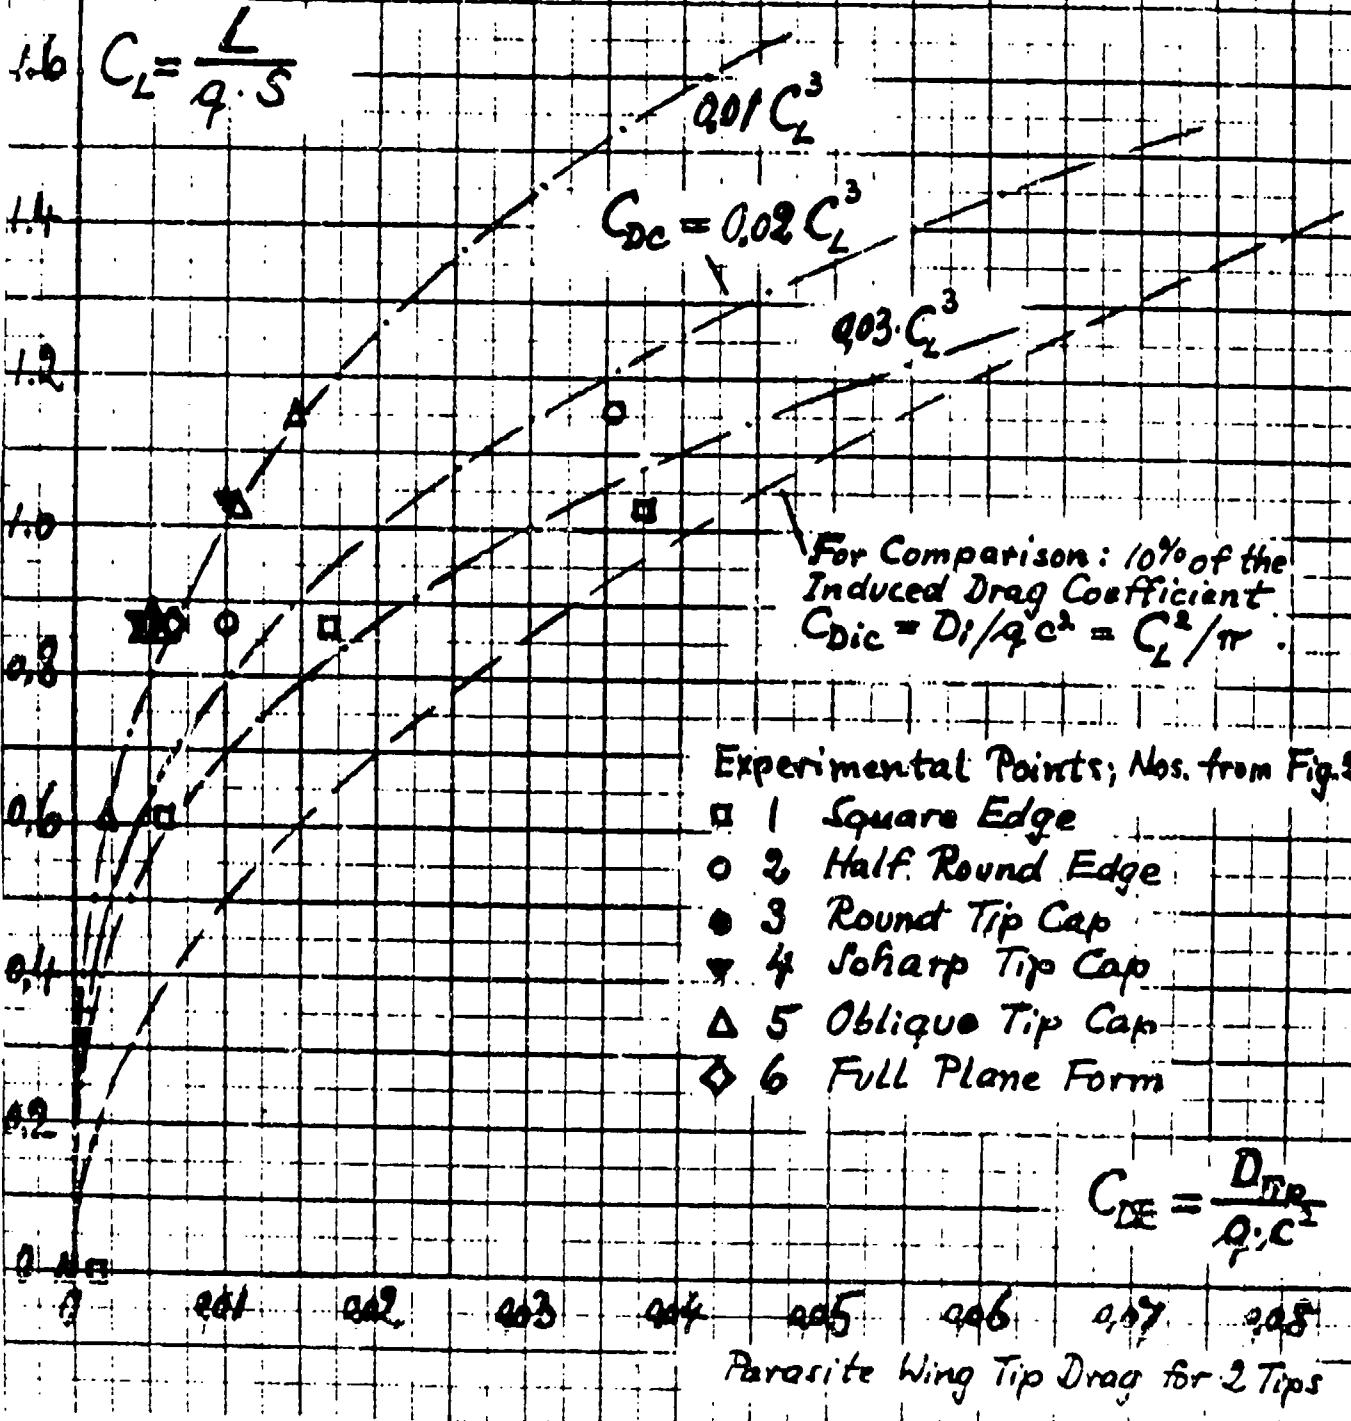 1.6 C_L = L / q · S
0,01 C_L^3
1.4
C_DC = 0.02 C_L^3
0,03 · C_L^3
1.2
1.0
For Comparison: 10% of the
Induced Drag Coefficient
C_Dic = Di/qc² = C_L²/π .
0,8
Experimental Points; Nos. from Fig.
0,6
1 Square Edge
2 Half Round Edge
3 Round Tip Cap
0,4
4 Soharp Tip Cap
5 Oblique Tip Cap
6 Full Plane Form
0.2
C_DE = D_Tip / q · c²
0
0 0,01 0,02 0,03 0,04 0,05 0,06 0,07 0,08
Parasite Wing Tip Drag for 2 Tips